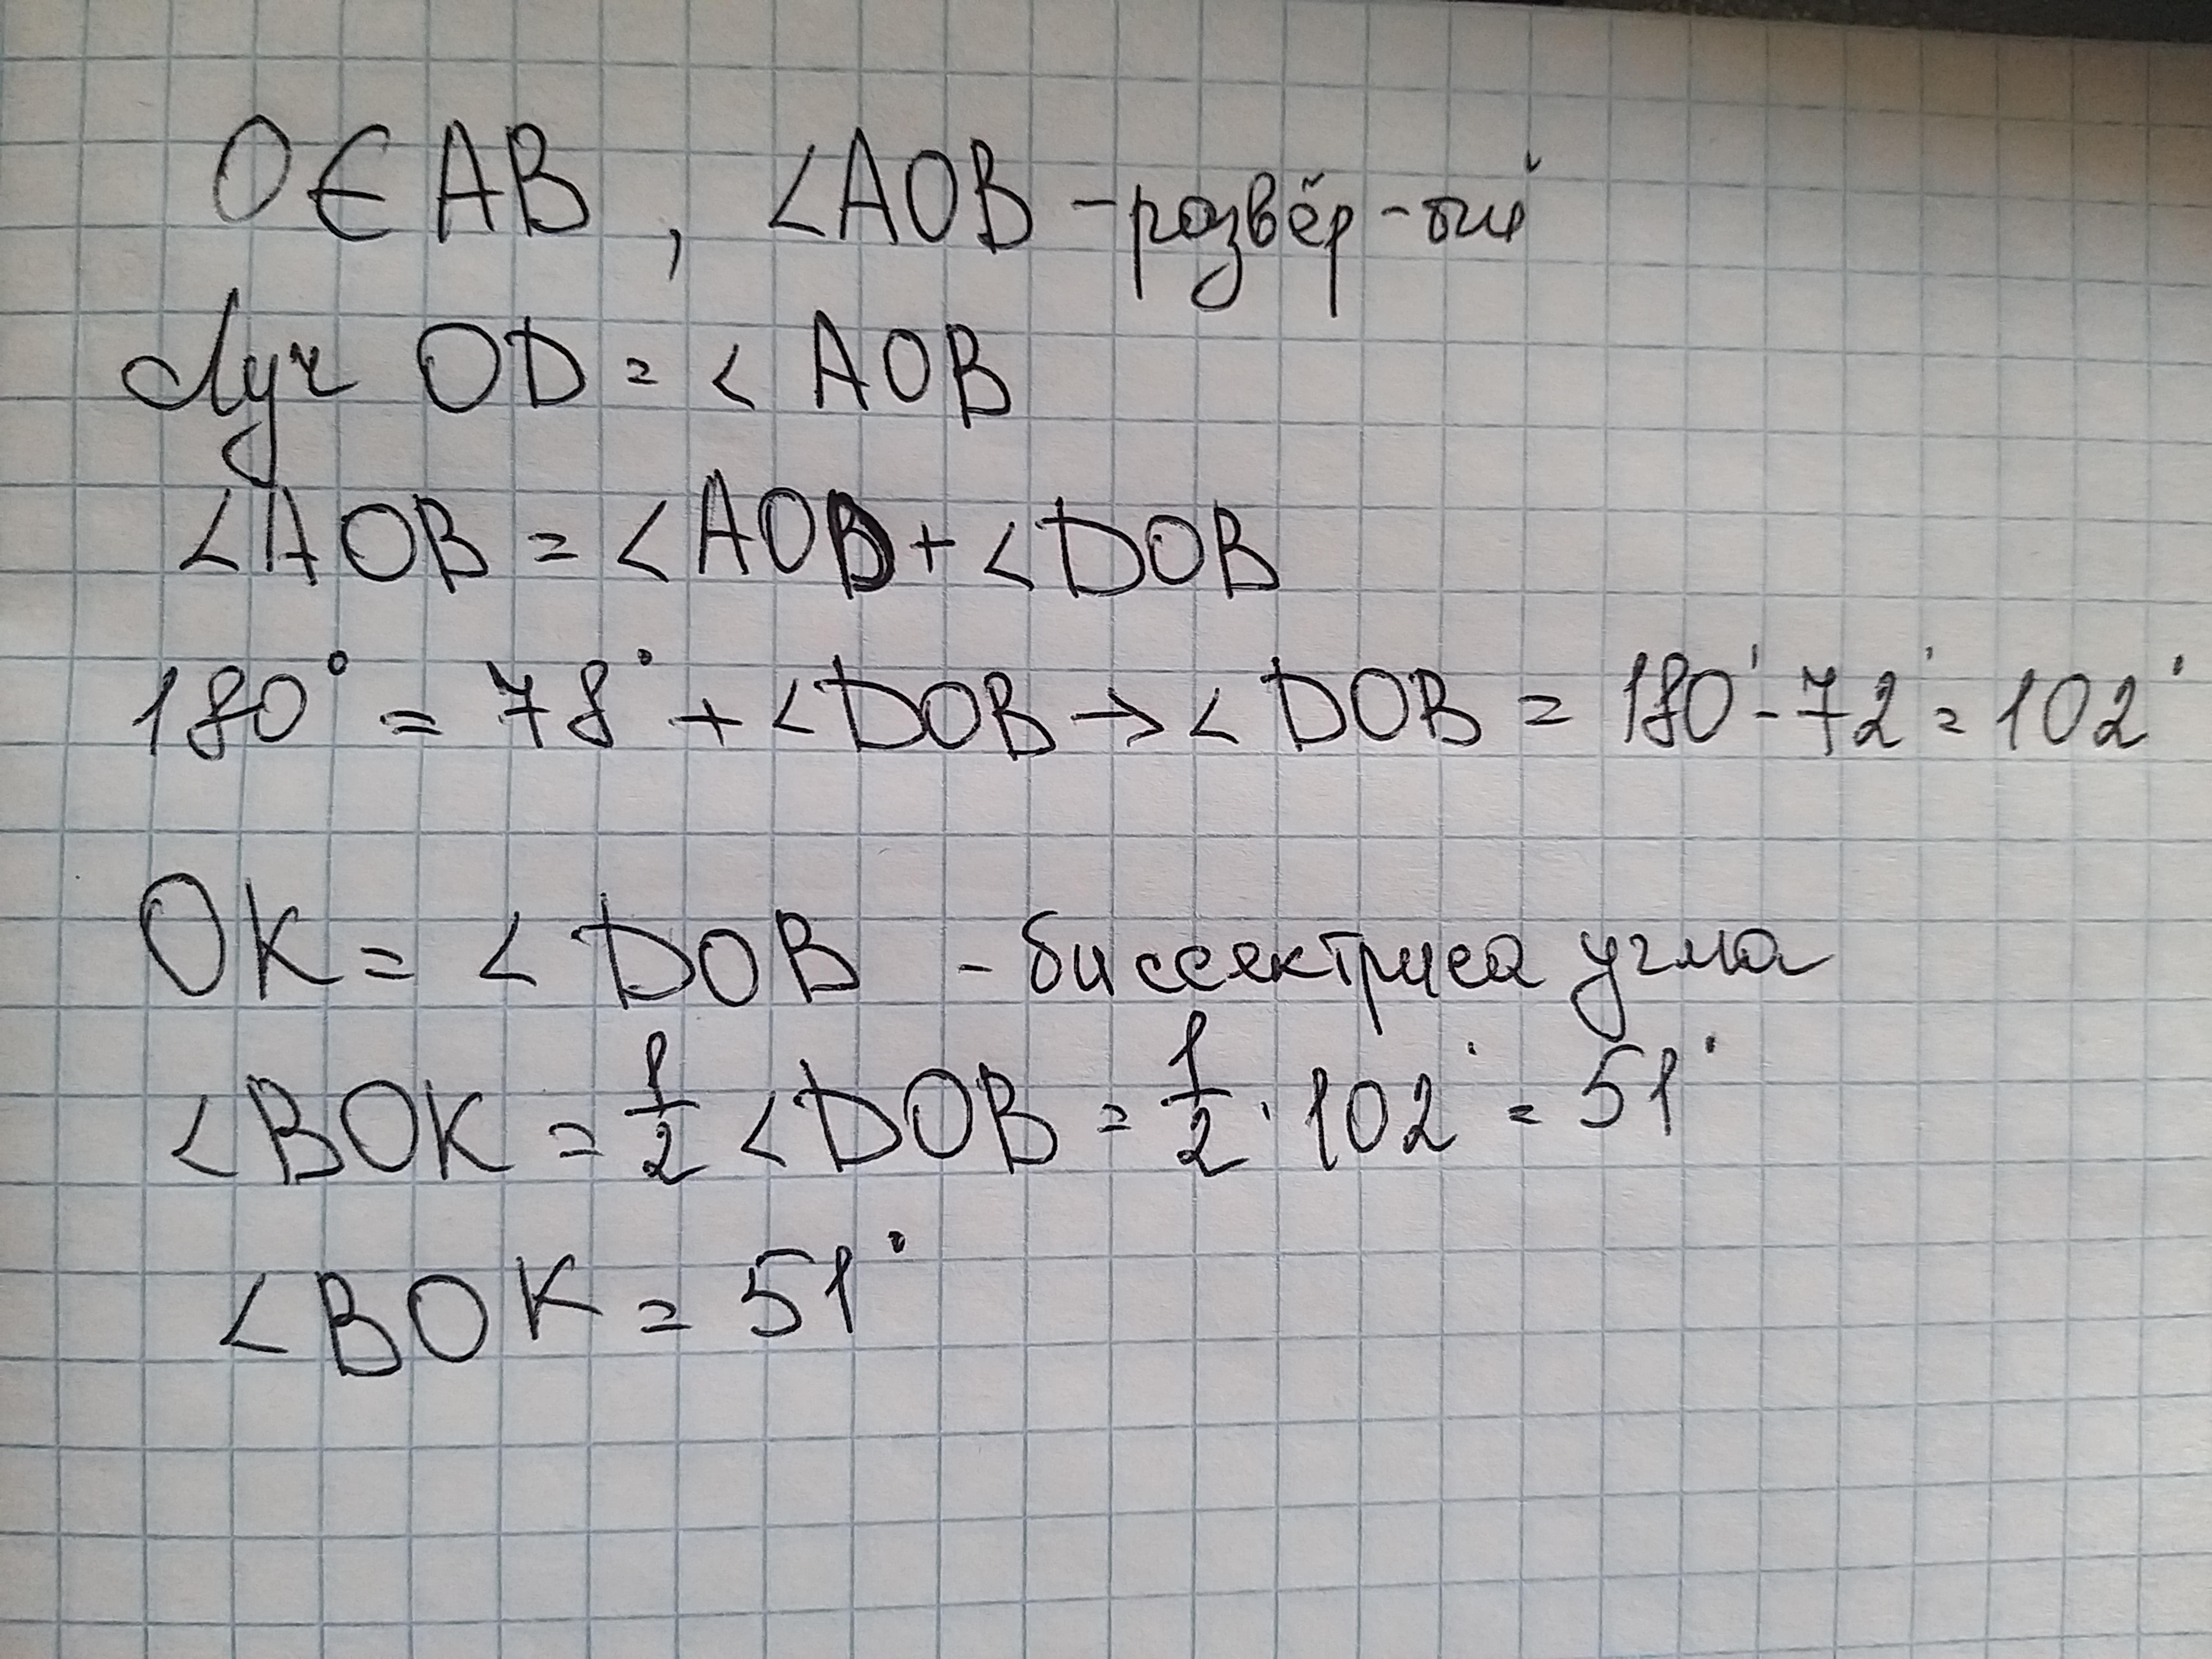 O∈AB, <AOB - развёр-ый
Луч OD = < AOB
<AOB = <AOD + <DOB
180° = 78° + <DOB → < DOB = 180° - 72° = 102°
OK = < DOB - биссектриса угла
<BOK = 1/2 <DOB = 1/2 · 102° = 51°
<BOK = 51°